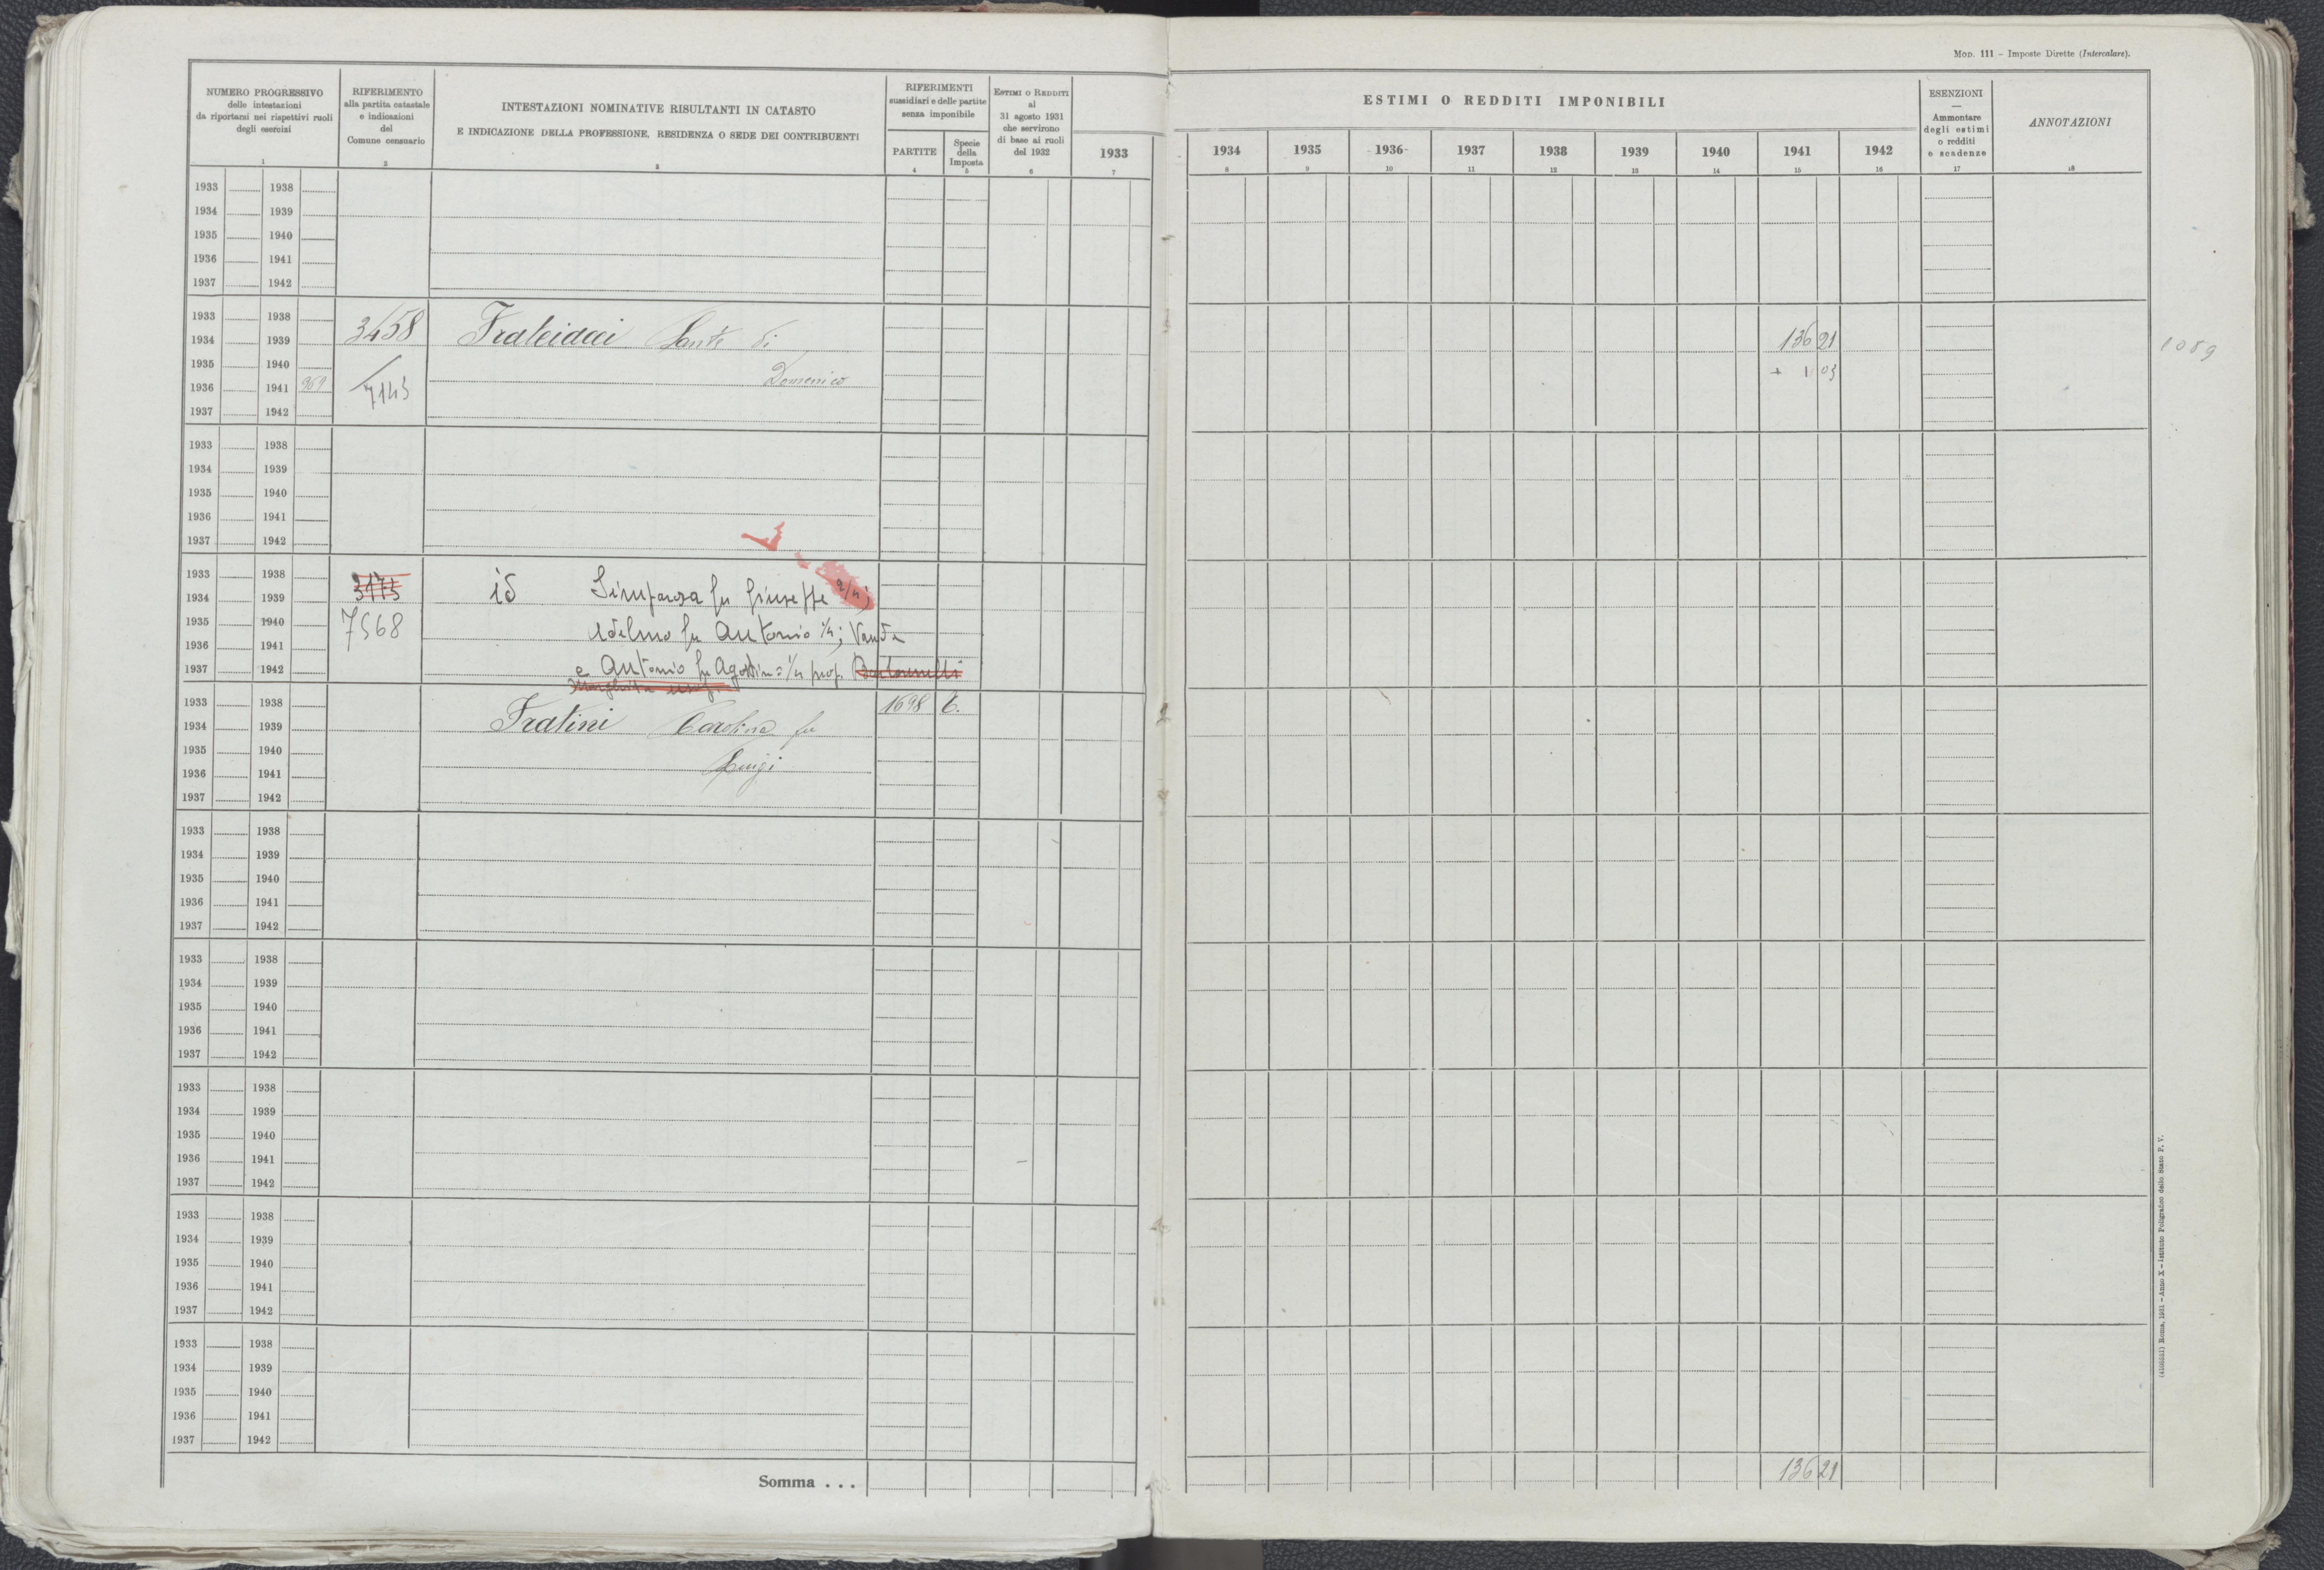 Mod. 111 - Imposte Dirette (Intercalare).
NUMERO PROGRESSIVO
delle intestazioni
da riportarsi nei rispettivi ruoli
degli esercizi
1
RIFERIMENTO
alla partita catastale
e indicazioni
del
Comune censuario
2
INTESTAZIONI NOMINATIVE RISULTANTI IN CATASTO
E INDICAZIONE DELLA PROFESSIONE, RESIDENZA O SEDE DEI CONTRIBUENTI
3
RIFERIMENTI
sussidiari e delle partite
senza imponibile
PARTITE
4
Specie
della
Imposta
5
Estimi o Redditi
al
31 agosto 1931
che servirono
di base ai ruoli
del 1932
6
1933
7
ESTIMI O REDDITI IMPONIBILI
1934 1935 1936 1937 1938 1939 1940 1941 1942
8 9 10 11 12 13 14 15 16
ESENZIONI
—
Ammontare
degli estimi
o redditi
e scadenze
17
ANNOTAZIONI
18
1933 1938
1934 1939
1935 1940
1936 1941
1937 1942
1933 1938
3458 Fralcidacci Sante di
1934 1939 136 21
1089
1935 1940
+ 1 03
1936 1941 959 7143 Domenico
1937 1942
1933 1938
1934 1939
1935 1940
1936 1941
1937 1942
1933 1938
3173 id Simforosa fu Giuseppe 2/4;
1934 1939
7568
1935 1940
Adelmo fu Antonio 1/4; Vanda
1936 1941
1937 1942
e Antonio fu Agostino 1/4 prop.
1933 1938
1698 C.
Fratini Carolina fu
1934 1939
1935 1940
Luigi
1936 1941
1937 1942
1933 1938
1934 1939
1935 1940
1936 1941
1937 1942
1933 1938
1934 1939
1935 1940
1936 1941
1937 1942
1933 1938
1934 1939
1935 1940
1936 1941
1937 1942
1933 1938
1934 1939
1935 1940
1936 1941
1937 1942
1933 1938
1934 1939
1935 1940
1936 1941
1937 1942
Somma . . .
136 21
Roma, 1931 - Anno X - Istituto Poligrafico dello Stato P. V.